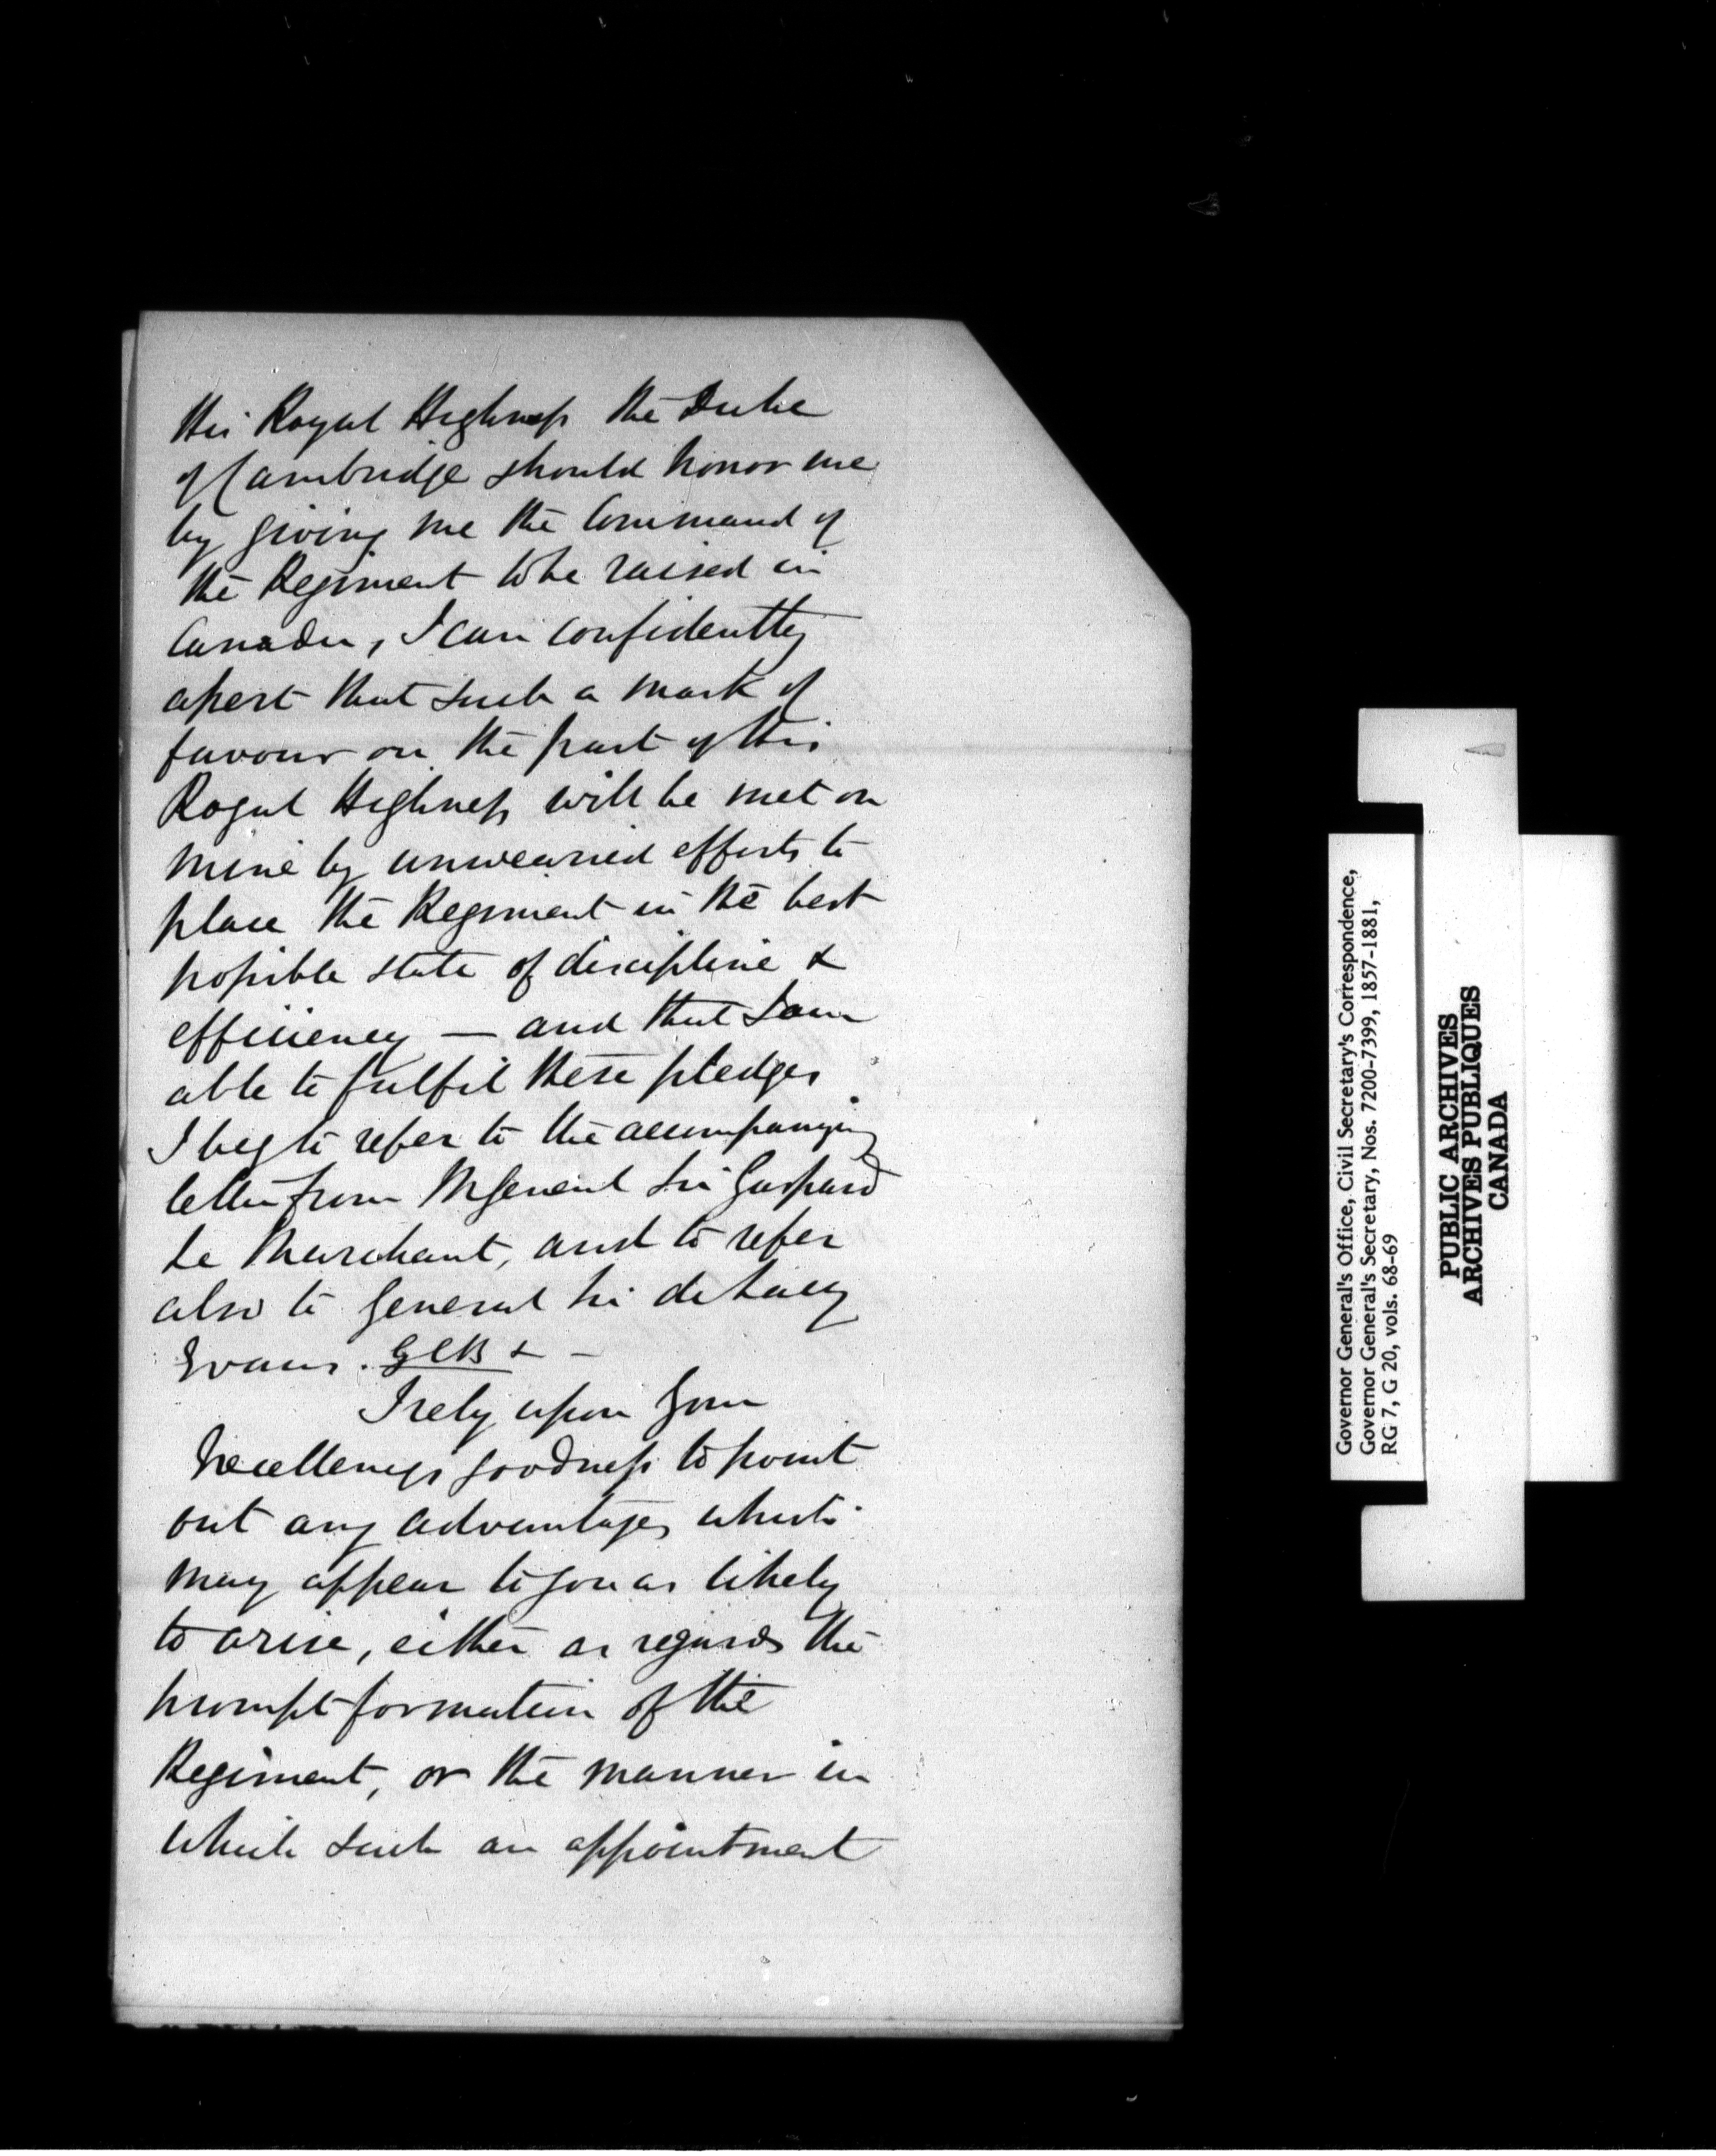 His Royal Highness the Duke
of Cambridge should honor me
by giving me the Command of
the Regiment to be raised in
Canada, I can confidently
assert that such a mark of
favour on the part of His
Royal Highness will be met on
mine by unwearied efforts to
place the Regiment in the best
possible state of discipline &
efficiency — and that I am
able to fulfil these pledges
I beg to refer to the accompanying
letter from MGeneral Sir Gaspard
Le Marchant, and to refer
also to General Sir de Lacy
Evans. GCB & —
I rely upon Your
Excellencys goodness to point
out any advantages which
may appear to you as likely
to arise, either as regards the
prompt formation of the
Regiment, or the manner in
which such an appointment
Governor General's Office, Civil Secretary's Correspondence,
Governor General's Secretary, Nos. 7200-7399, 1857-1881,
RG 7, G 20, vols. 68-69
PUBLIC ARCHIVES
ARCHIVES PUBLIQUES
CANADA